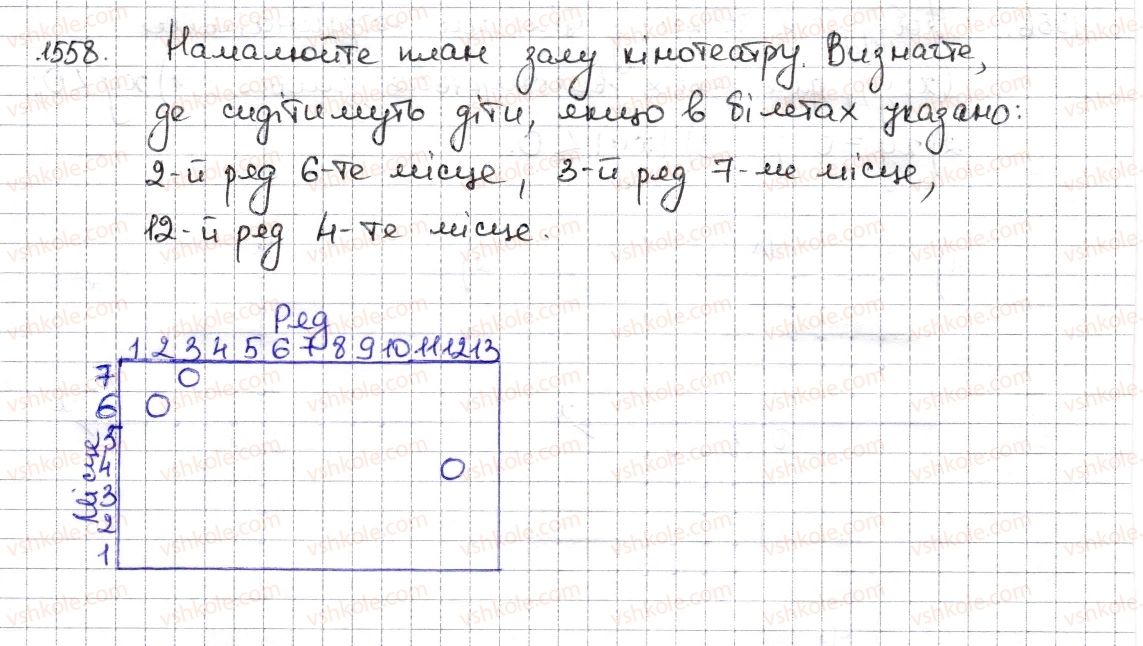 1558. Намалюйте план залу кінотеатру. Визначте,
де сидітимуть діти, якщо в білетах указано:
2-й ряд 6-те місце, 3-й ряд 7-ме місце,
12-й ряд 4-те місце.
Ряд
1 2 3 4 5 6 7 8 9 10 11 12 13
Місце
7
6
5
4
3
2
1